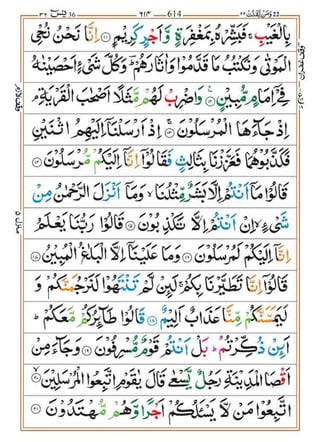 يٰسٓ ٣٦ ٦١٤ 614 وَمَنْ يَّقْنُتْ ٢٢
بِالْغَيْبِ ۚ فَبَشِّرْهُ بِمَغْفِرَةٍ وَّاَجْرٍ كَرِيْمٍ ﴿۱۱﴾ اِنَّا نَحْنُ نُحْيِ
الْمَوْتٰى وَنَكْتُبُ مَا قَدَّمُوْا وَاٰثَارَهُمْ ؕ وَكُلَّ شَيْءٍ اَحْصَيْنٰهُ
فِيْۤ اِمَامٍ مُّبِيْنٍ ﴿۱۲﴾ وَاضْرِبْ لَهُمْ مَّثَلًا اَصْحٰبَ الْقَرْيَةِ ۘ
اِذْ جَآءَهَا الْمُرْسَلُوْنَ ﴿۱۳﴾ اِذْ اَرْسَلْنَاۤ اِلَيْهِمُ اثْنَيْنِ
فَكَذَّبُوْهُمَا فَعَزَّزْنَا بِثَالِثٍ فَقَالُوْۤا اِنَّاۤ اِلَيْكُمْ مُّرْسَلُوْنَ ﴿۱۴﴾
قَالُوْا مَاۤ اَنْتُمْ اِلَّا بَشَرٌ مِّثْلُنَا ۙ وَمَاۤ اَنْزَلَ الرَّحْمٰنُ مِنْ
شَيْءٍ ۙ اِنْ اَنْتُمْ اِلَّا تَكْذِبُوْنَ ﴿۱۵﴾ قَالُوْا رَبُّنَا يَعْلَمُ
اِنَّاۤ اِلَيْكُمْ لَمُرْسَلُوْنَ ﴿۱۶﴾ وَمَا عَلَيْنَاۤ اِلَّا الْبَلٰغُ الْمُبِيْنُ ﴿۱۷﴾
قَالُوْۤا اِنَّا تَطَيَّرْنَا بِكُمْ ۚ لَئِنْ لَّمْ تَنْتَهُوْا لَنَرْجُمَنَّكُمْ وَ
لَيَمَسَّنَّكُمْ مِّنَّا عَذَابٌ اَلِيْمٌ ﴿۱۸﴾ قَالُوْا طَآئِرُكُمْ مَّعَكُمْ ؕ
اَئِنْ ذُكِّرْتُمْ ؕ بَلْ اَنْتُمْ قَوْمٌ مُّسْرِفُوْنَ ﴿۱۹﴾ وَجَآءَ مِنْ
اَقْصَا الْمَدِيْنَةِ رَجُلٌ يَّسْعٰى قَالَ يٰقَوْمِ اتَّبِعُوا الْمُرْسَلِيْنَ ﴿۲۰﴾
اتَّبِعُوْا مَنْ لَّا يَسْئَلُكُمْ اَجْرًا وَّهُمْ مُّهْتَدُوْنَ ﴿۲۱﴾
وقف لازم
منزل ۵